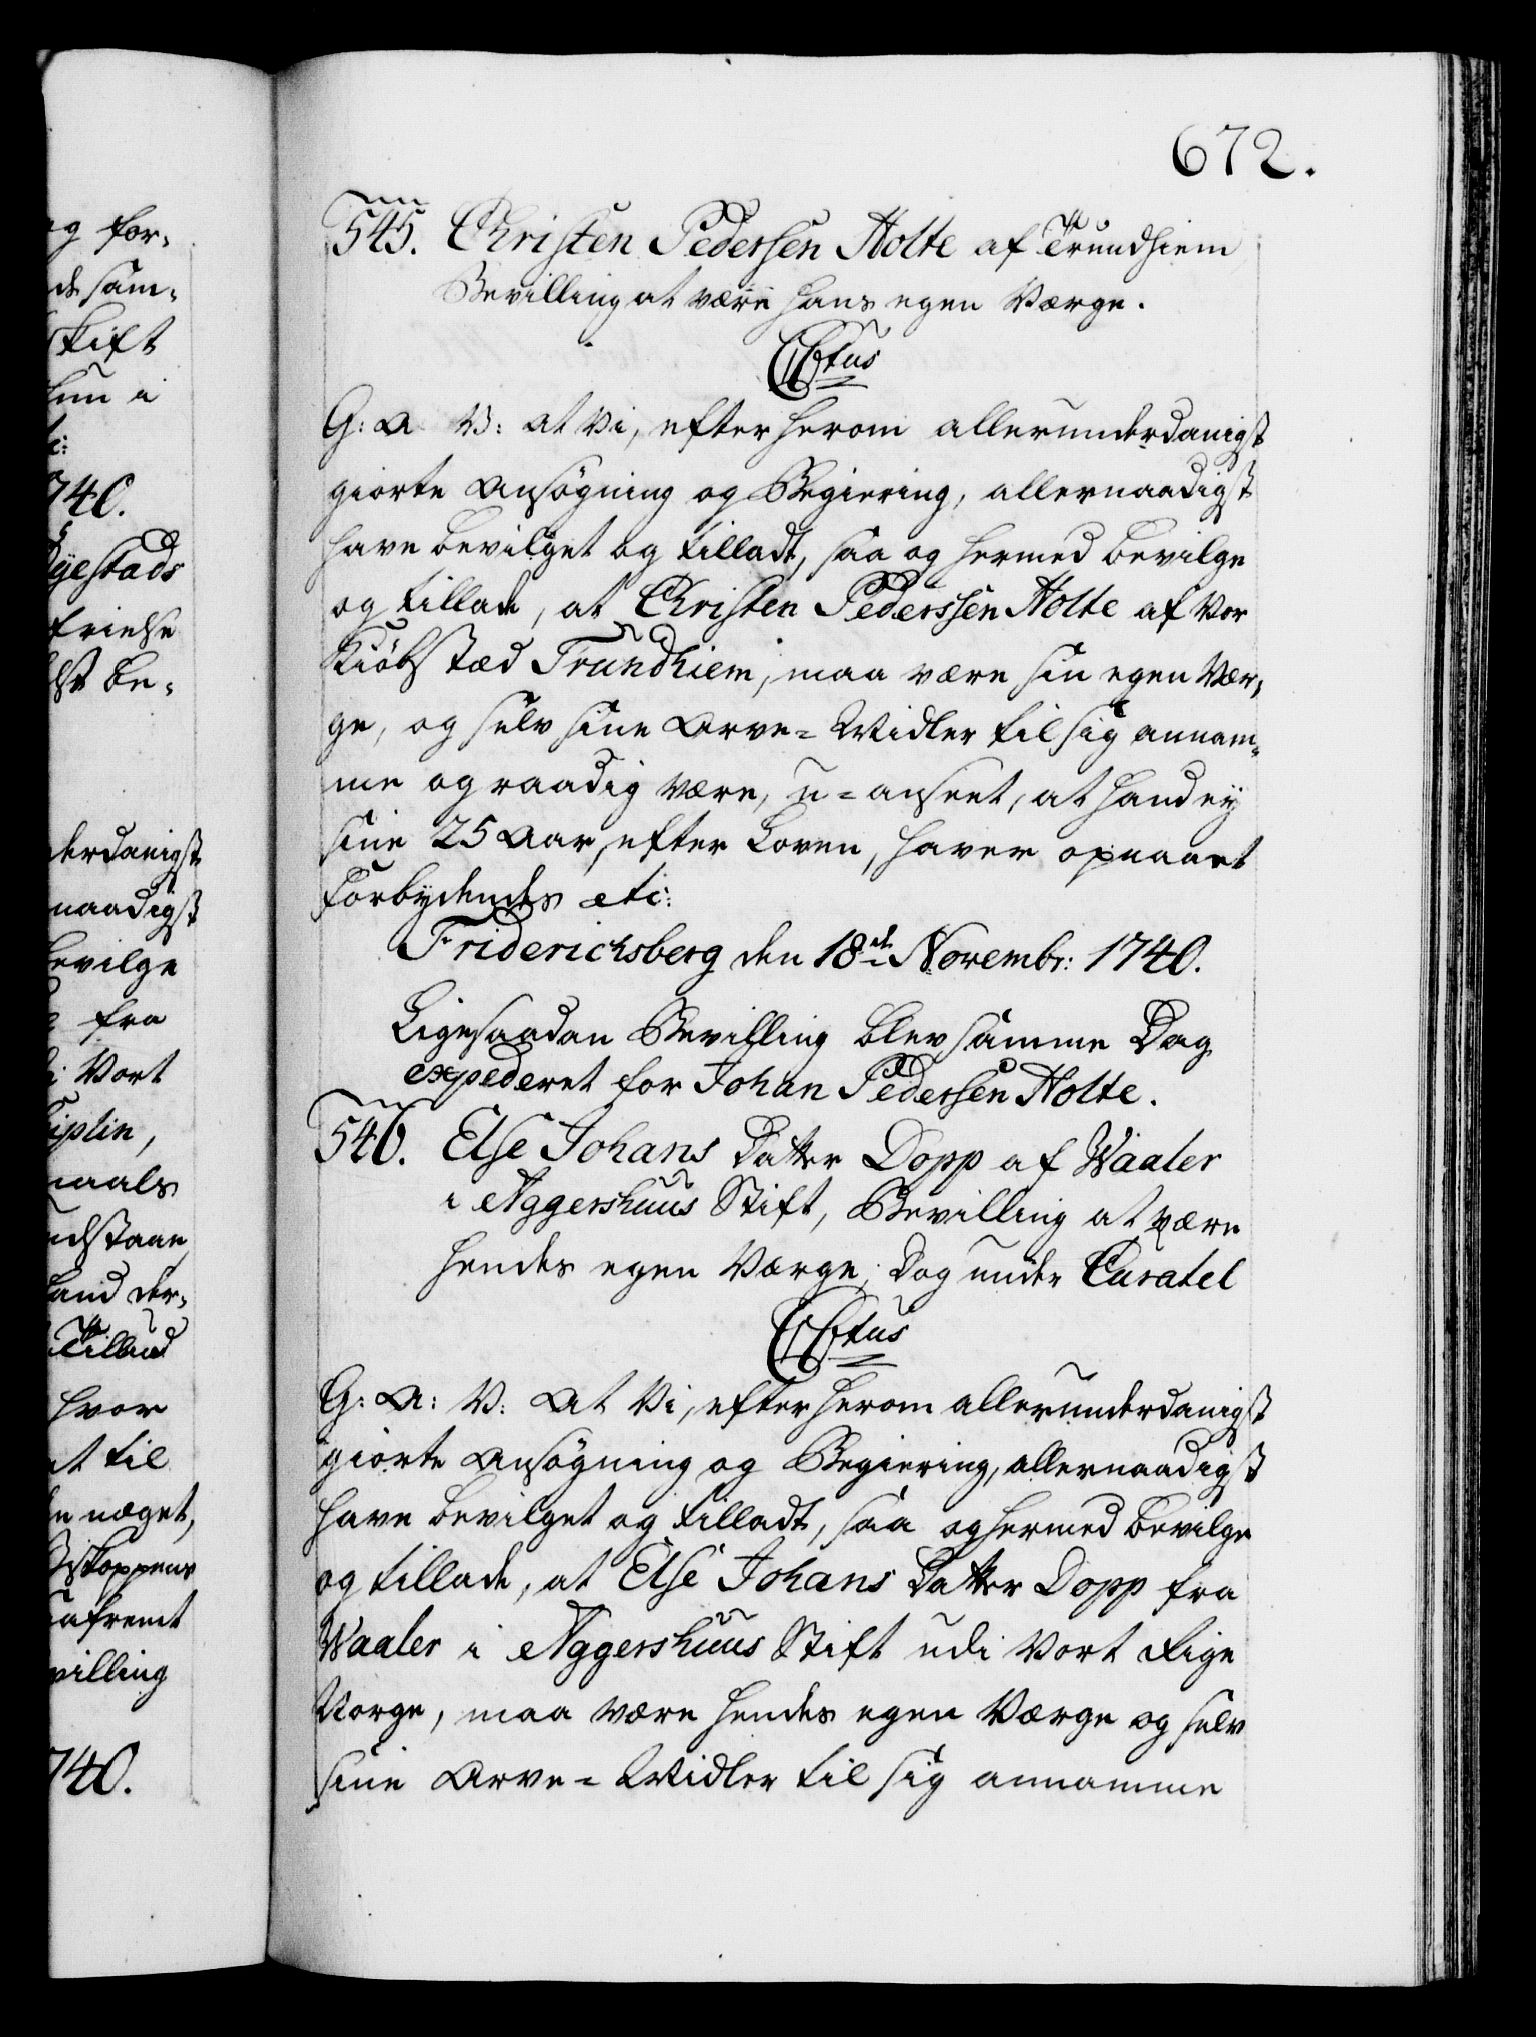 ng for-
de sam-
Skift
hun i
ti:
740.
yestads
frielse
lst be-
derdanigst
naadigst
bevilge
fra
i Vort
iplin,
maals
udstaae
land der-
Tilbud
hvor
at til
noget,
Biskoppens
villing
740.
672.
545. Christen Pedersen Holte af Trundhiem
Bevilling at være hans egen Værge.
C6tus
G: A V: at Vi, efter herom allerunderdanigst
giorte Ansøgning og Begiering, allernaadigst
have bevilget og tilladt, saa og hermed bevilge
og tillade, at Christen Pederssen Holte af Vor
Kiøbstæd Trundhiem, maa være sin egen Vær-
ge, og selv sine Arve-Midler til sig annam-
me og raadig være, u-anseet, at hand ey
sine 25 Aar, efter Loven, haver opnaaet
Forbydendes etc:
Friderichsberg den 18de Novembr: 1740.
Ligesaadan Bevilling blev samme Dag
expederet for Johan Pedersen Holte.
546. Else Johans Datter Dopp af Waaler
i Aggershuus Stift, Bevilling at være
hendes egen Værge, dog under Curatel
C6tus
G: A: V: At Vi, efter herom allerunderdanigst
giorte Ansøgning og Begiering, allernaadigst
have bevilget og tilladt, saa og hermed bevilge
og tillade, at Else Johans Datter Dopp fra
Waaler i Aggershuus Stift udi Vort Rige
Norge, maa være hendes egen Værge og selv
sine Arve-Midler til sig annamme